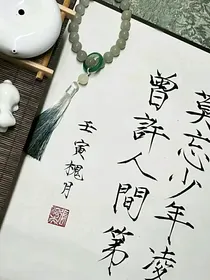 莫忘少年凌
曾許人間第
壬寅槐月